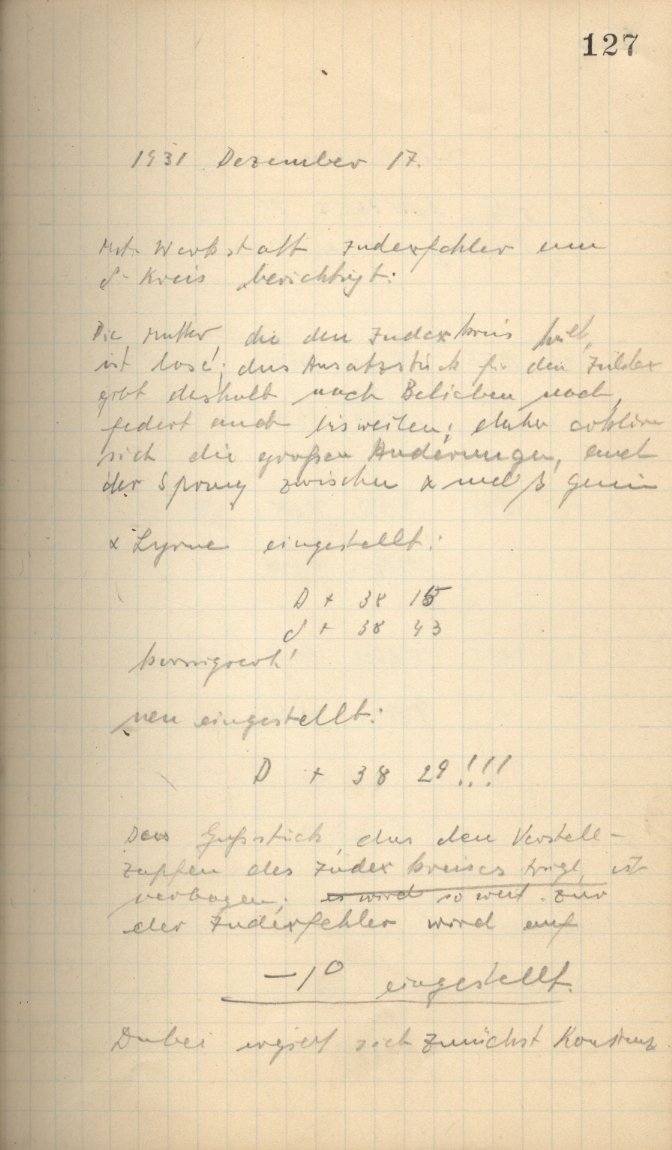 127
1931 Dezember 17.
Mit Werkstatt Indexfehler am
δ-Kreis berichtigt:
Die Mutter, die den Indexkreis hält,
ist lose; das Ansatzstück für den Index
gibt deshalb nach Belieben nach,
federt auch bisweilen; daher erklären
sich die großen Änderungen, auch
der Sprung zwischen α und β Gemin
α Lyrae eingestellt:
D + 38 15
δ + 38 43
neu eingestellt:
D + 38 29!!!
Das Gußstück, das den Verstell-
zapfen des Indexkreises trägt, ist
verbogen; es wird so weit zur
der Indexfehler wird auf
−1° eingestellt.
Dabei ergibt sich zunächst Konstanz